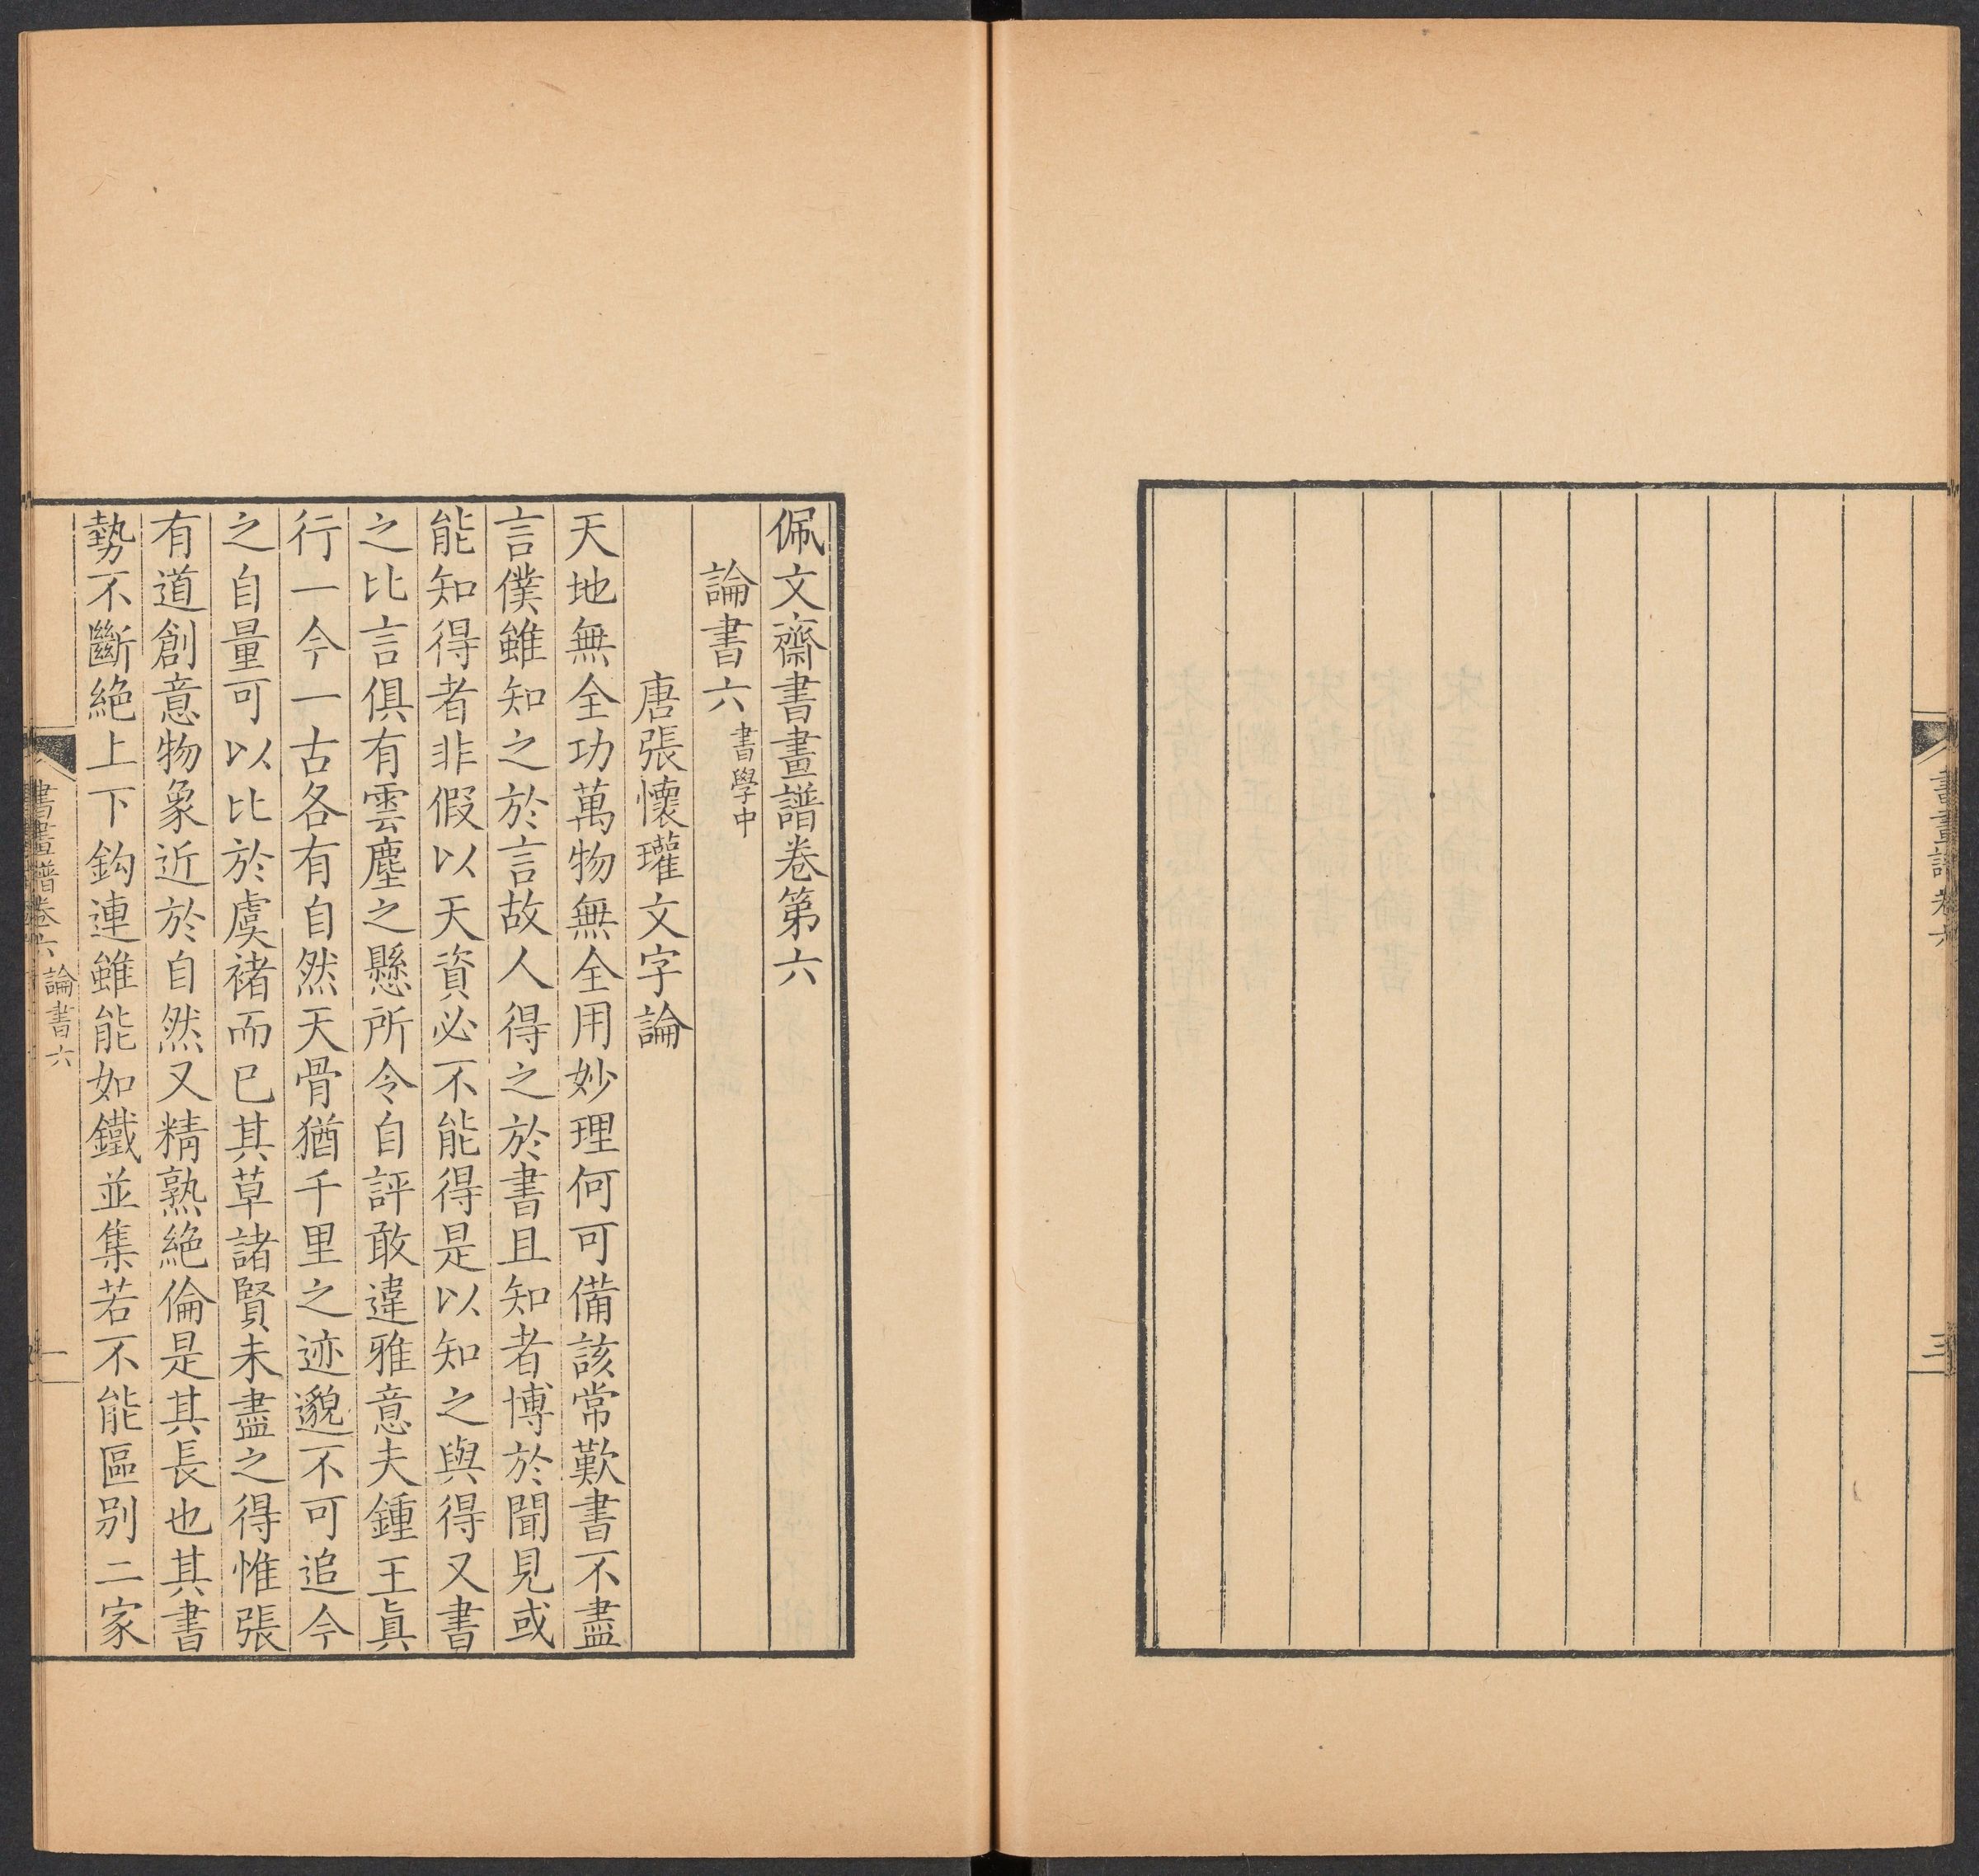 書畫譜卷六
三
佩文齋書畫譜卷第六
論書六 書學中
唐張懷瓘文字論
天地無全功萬物無全用妙理何可備該常歎書不盡
言僕雖知之於言故人得之於書且知者博於聞見或
能知得者非假以天資必不能得是以知之與得又書
之比言俱有雲塵之懸所令自評敢違雅意夫鍾王眞
行一今一古各有自然天骨猶千里之迹邈不可追今
之自量可以比於虞褚而已其草諸賢未盡之得惟張
有道創意物象近於自然又精熟絶倫是其長也其書
勢不斷絶上下鈎連雖能如鐵並集若不能區别二家
書畫譜卷六 論書六
一